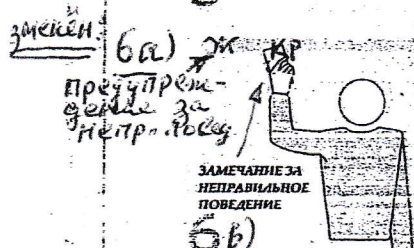 змекен.
6а) Ж КР
предупреж-
дение за
непр. повед
ЗАМЕЧАНИЕ ЗА
НЕПРАВИЛЬНОЕ
ПОВЕДЕНИЕ
6в)